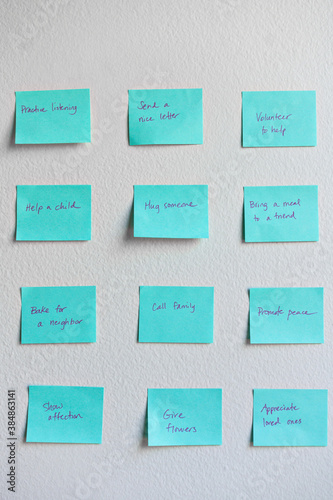 Practice listening
Send a
nice letter
Volunteer
to help
Help a child
Hug someone
Bring a meal
to a friend
Bake for
a neighbor
Call Family
Promote peace
Show
affection
Give
flowers
Appreciate
loved ones
Adobe Stock | #384863141